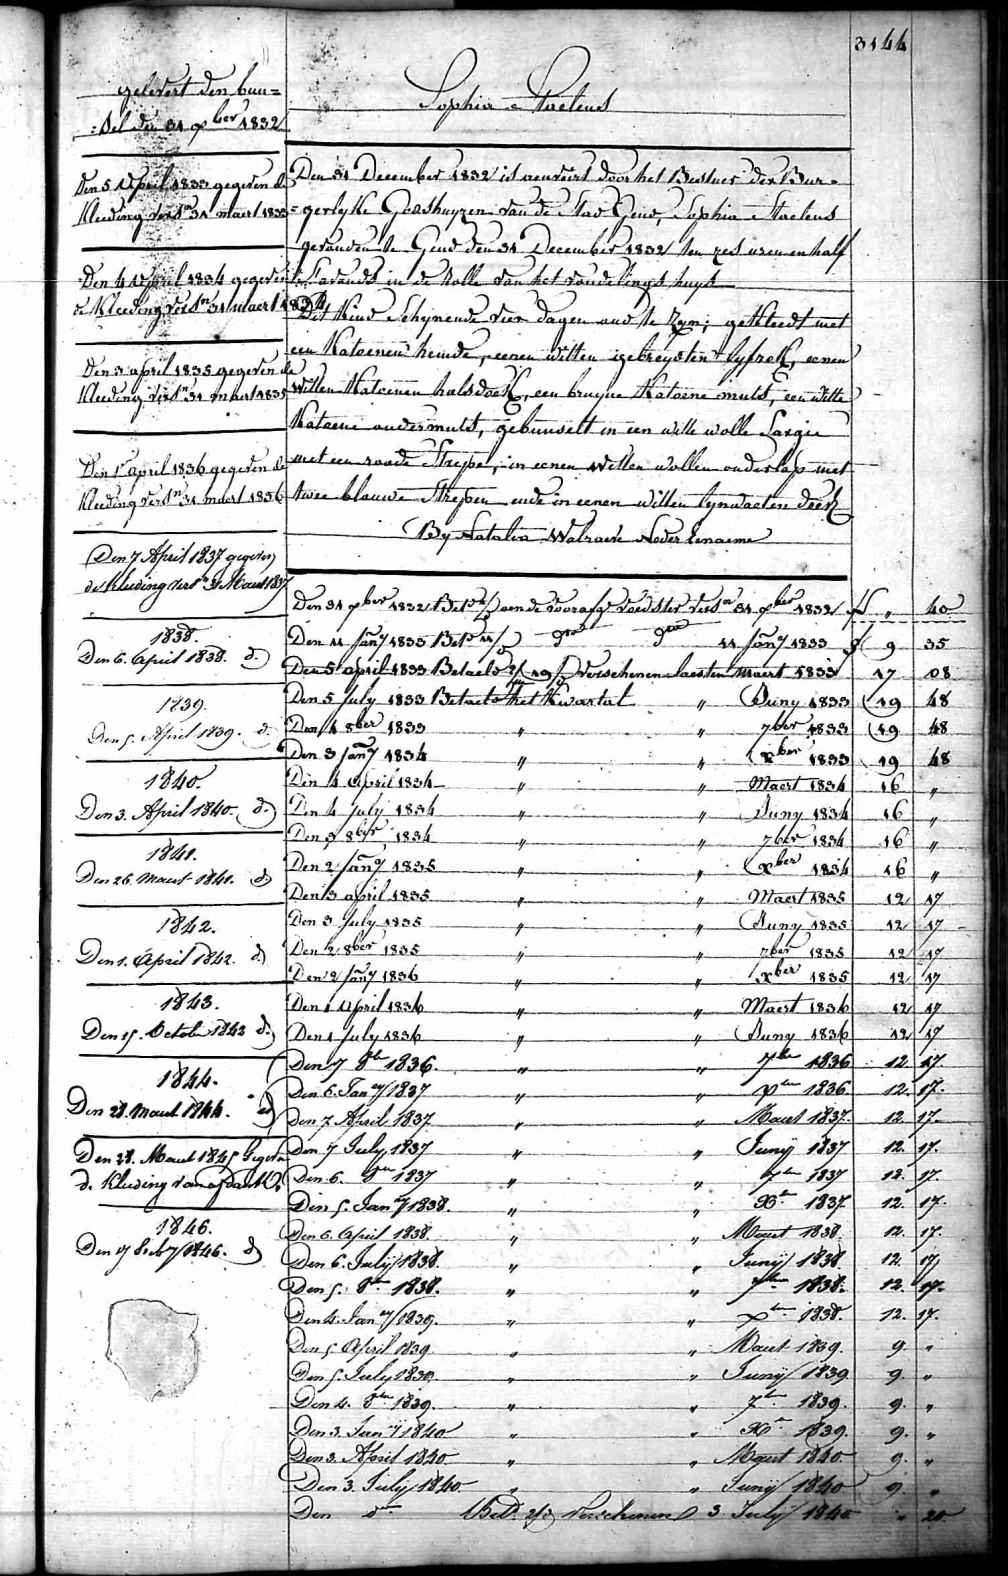 3144
gelevert den bun=
:del den 31 xber 1832
Den 5 April 1833 gegeven de
Kleeding vers.n 31 maert 1833
Den 4 April 1834 gegeven
de Kleeding vers.n 31 maert 1834
Den 3 april 1835 gegeven de
Kleeding vers.n 31 maert 1835
Den 1 april 1836 gegeven de
Kleeding vers.n 31 maert 1836
Den 7 April 1837 gegeven
de Kleeding vers.n 31 Maert 1837
1838.
Den 6. April 1838. d.
1839.
Den 5. April 1839. d.
1840.
Den 3. April 1840. d.
1841.
Den 26. Maert 1841. d
1842.
Den 1. April 1842. d
1843.
Den 15. October 1843 d.
1844.
Den 28. Maert 1844. d
Den 28. Maert 1845 Gegeven
d. Kleeding
1846.
Den 17 1846. d
Sophia
Den 31 December 1832 is aenveirt door het Bestuer der Bur=
=gerlyke Godshuyzen van de Stad Gend, Sophia
gevonden te Gend den 31 December 1832 ten zes uren en half
S'avonds in de Rolle van het vondelings huys
Dit Kind Schynende vier dagen oud te zyn; gekleedt met
een Katoenen hemde, eenen witten gebreyden lyfrok, eenen
witten Katoenen halsdoek, een bruyne Katoene muts, een witte
Katoene ondermuts, gebunselt in een witte wolle Sargie
met een roode Strepe, in eenen witten wollen onderlap met
twee blauwe Strepen ende in eenen witten lynwaeten doek
By Natalia
Den 31 xber 1832 Bet.d aen de voorafg.e voedster vers.n 31 xber 1832 f " 40
Den 11 Jan.y 1833 Bet.d d.o d.o 11 Jan.y 1833 f 9 35
Den 5 april 1833 Betaelt Verschenen laesten Maert 1833 17 08
Den 5 July 1833 Betaelt het Kwartal " Juny 1833 19 48
Den 4 8ber 1833 " 7ber 1833 19 48
Den 3 Jan.y 1834 " " xber 1833 19 48
Den 4 April 1834 " " Maert 1834 16 "
Den 4 July 1834 " " Juny 1834 16 "
Den 3 8ber 1834 " " 7ber 1834 16 "
Den 2 Jan.y 1835 " " xber 1834 16 "
Den 3 april 1835 " " Maert 1835 12 17
Den 3 July 1835 " " Juny 1835 12 17
Den 2 8ber 1835 " " 7ber 1835 12 17
Den 2 Jan.y 1836 " " xber 1835 12 17
Den 1 April 1836 " " Maert 1836 12 17
Den 1 July 1836 " " Juny 1836 12 17
Den 7 8br 1836. " " 7br 1836 12 17.
Den 6. Jan.y 1837 " " xbr 1836. 12. 17.
Den 7. April 1837. " " Maert 1837. 12. 17.
Den 7 July 1837 " " Juny 1837 12. 17.
Den 6. 8br 1837 " " 7br 1837 12. 17.
Den 5. Jan.y 1838. " " Xbr 1837. 12. 17.
Den 6. April 1838. " " Maert 1838. 12. 17.
Den 6. July 1838. " " Juny 1838 12. 17
Den 5. 8br 1838. " " 7br 1838. 12. 17.
Den 4. Jan.y 1839. " " xbr 1838. 12. 17.
Den 5 April 1839. " " Maert 1839. 9. "
Den 5. July 1839. " " Juny 1839 9. "
Den 4. 8br 1839. " " 7br 1839. 9. "
Den 3. Jan.y 1840 " " Xbr 1839. 9. "
Den 3. April 1840 " " Maert 1840. 9. "
Den 3. July 1840. " " Juny 1840 9. "
Den d.o Bet.d Verschenen 3 July 1840 " 20